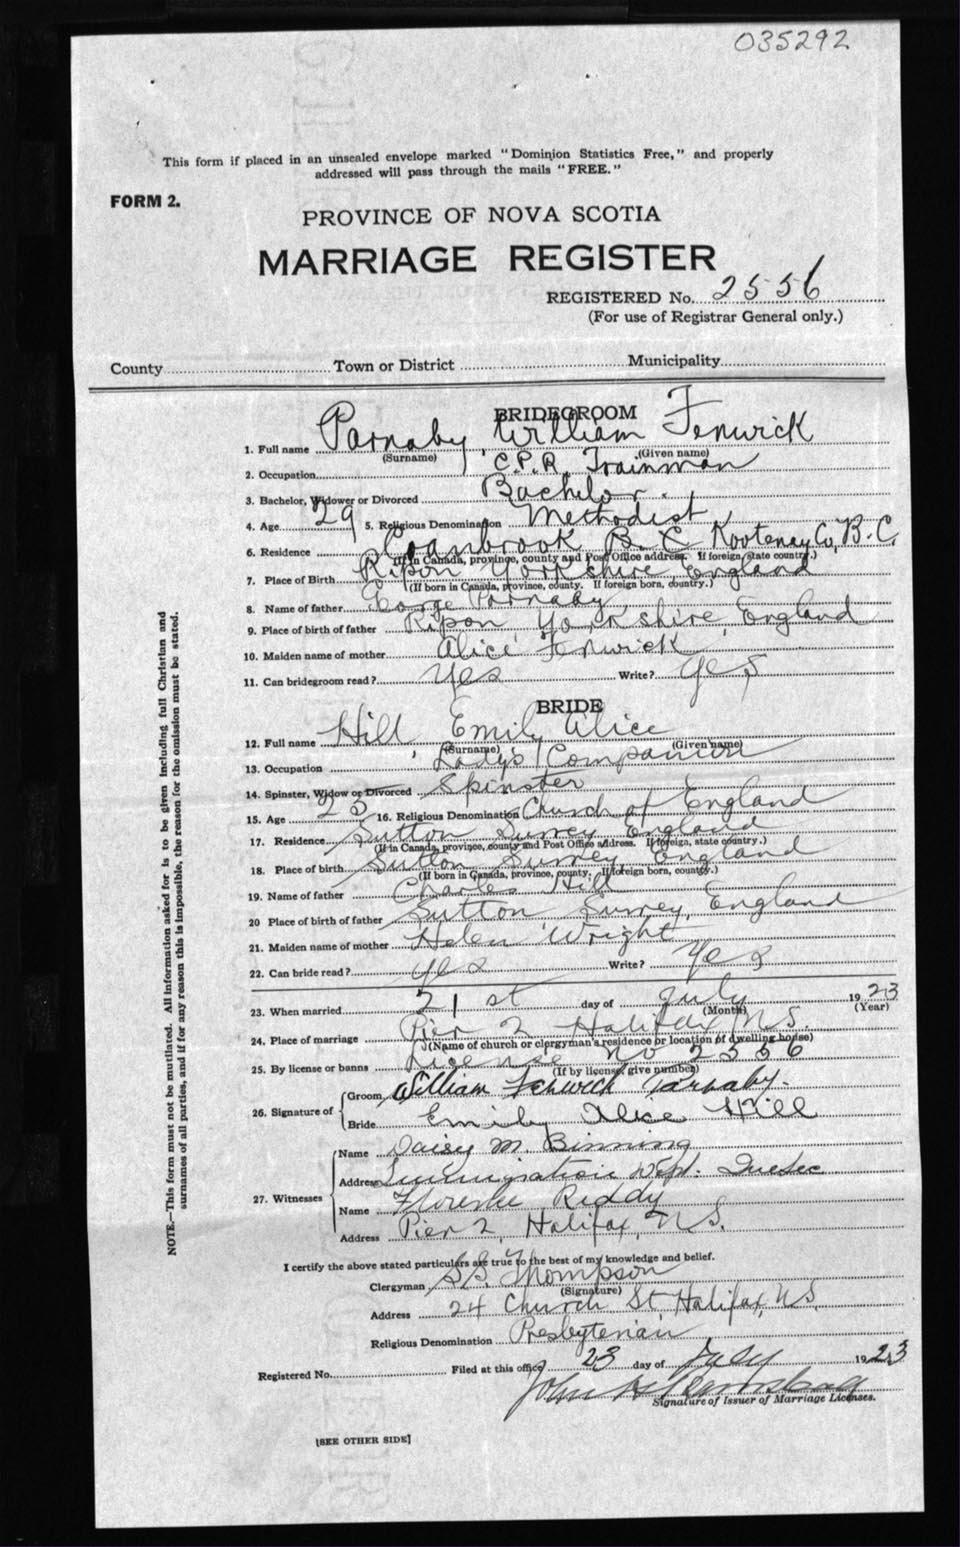 035292
This form if placed in an unsealed envelope marked "Dominion Statistics Free," and properly
addressed will pass through the mails "FREE."
FORM 2.
PROVINCE OF NOVA SCOTIA
MARRIAGE REGISTER
REGISTERED No. 2556
(For use of Registrar General only.)
County Town or District Municipality
BRIDEGROOM
1. Full name Parnaby William Fenwick
(Surname) (Given name)
2. Occupation C.P.R. Trainman
3. Bachelor, Widower or Divorced Bachelor.
4. Age 29 5. Religious Denomination Methodist
6. Residence Cranbrook B.C. Kootenay Co, B.C.
(If in Canada, province, county and Post Office address. If foreign, state country.)
7. Place of Birth Ripon Yorkshire England
(If born in Canada, province, county. If foreign born, country.)
8. Name of father George Parnaby
9. Place of birth of father Ripon Yorkshire, England
10. Maiden name of mother Alice Fenwick
11. Can bridegroom read? Yes Write? Yes
BRIDE
12. Full name Hill Emily Alice
(Surname) (Given name)
13. Occupation Lady's Companion
14. Spinster, Widow or Divorced Spinster
15. Age 25 16. Religious Denomination Church of England
17. Residence Sutton Surrey England
(If in Canada, province, county and Post Office address. If foreign, state country.)
18. Place of birth Sutton Surrey, England
(If born in Canada, province, county. If foreign born, country.)
19. Name of father Charles Hill
20 Place of birth of father Sutton Surrey, England
21. Maiden name of mother Helen Wright
22. Can bride read? Yes Write? Yes
23. When married 21st day of July 1923
(Month) (Year)
24. Place of marriage Pier 2 Halifax N.S.
(Name of church or clergyman's residence or location of dwelling house)
25. By license or banns License No 2556
(If by license, give number)
26. Signature of Groom William Fenwick Parnaby.
Bride Emily Alice Hill
27. Witnesses Name Daisy M. Binning
Address Immigration Dept. Quebec
Name Florence Reddy
Address Pier 2, Halifax, N.S.
I certify the above stated particulars are true to the best of my knowledge and belief.
Clergyman Thompson
(Signature)
Address 24 Church St Halifax, N.S.
Religious Denomination Presbyterian
Registered No. Filed at this office 23 day of July 1923
John
Signature of Issuer of Marriage Licenses.
[SEE OTHER SIDE]
NOTE.—This form must not be mutilated. All information asked for is to be given including full Christian and
surnames of all parties, and if for any reason this is impossible, the reason for the omission must be stated.